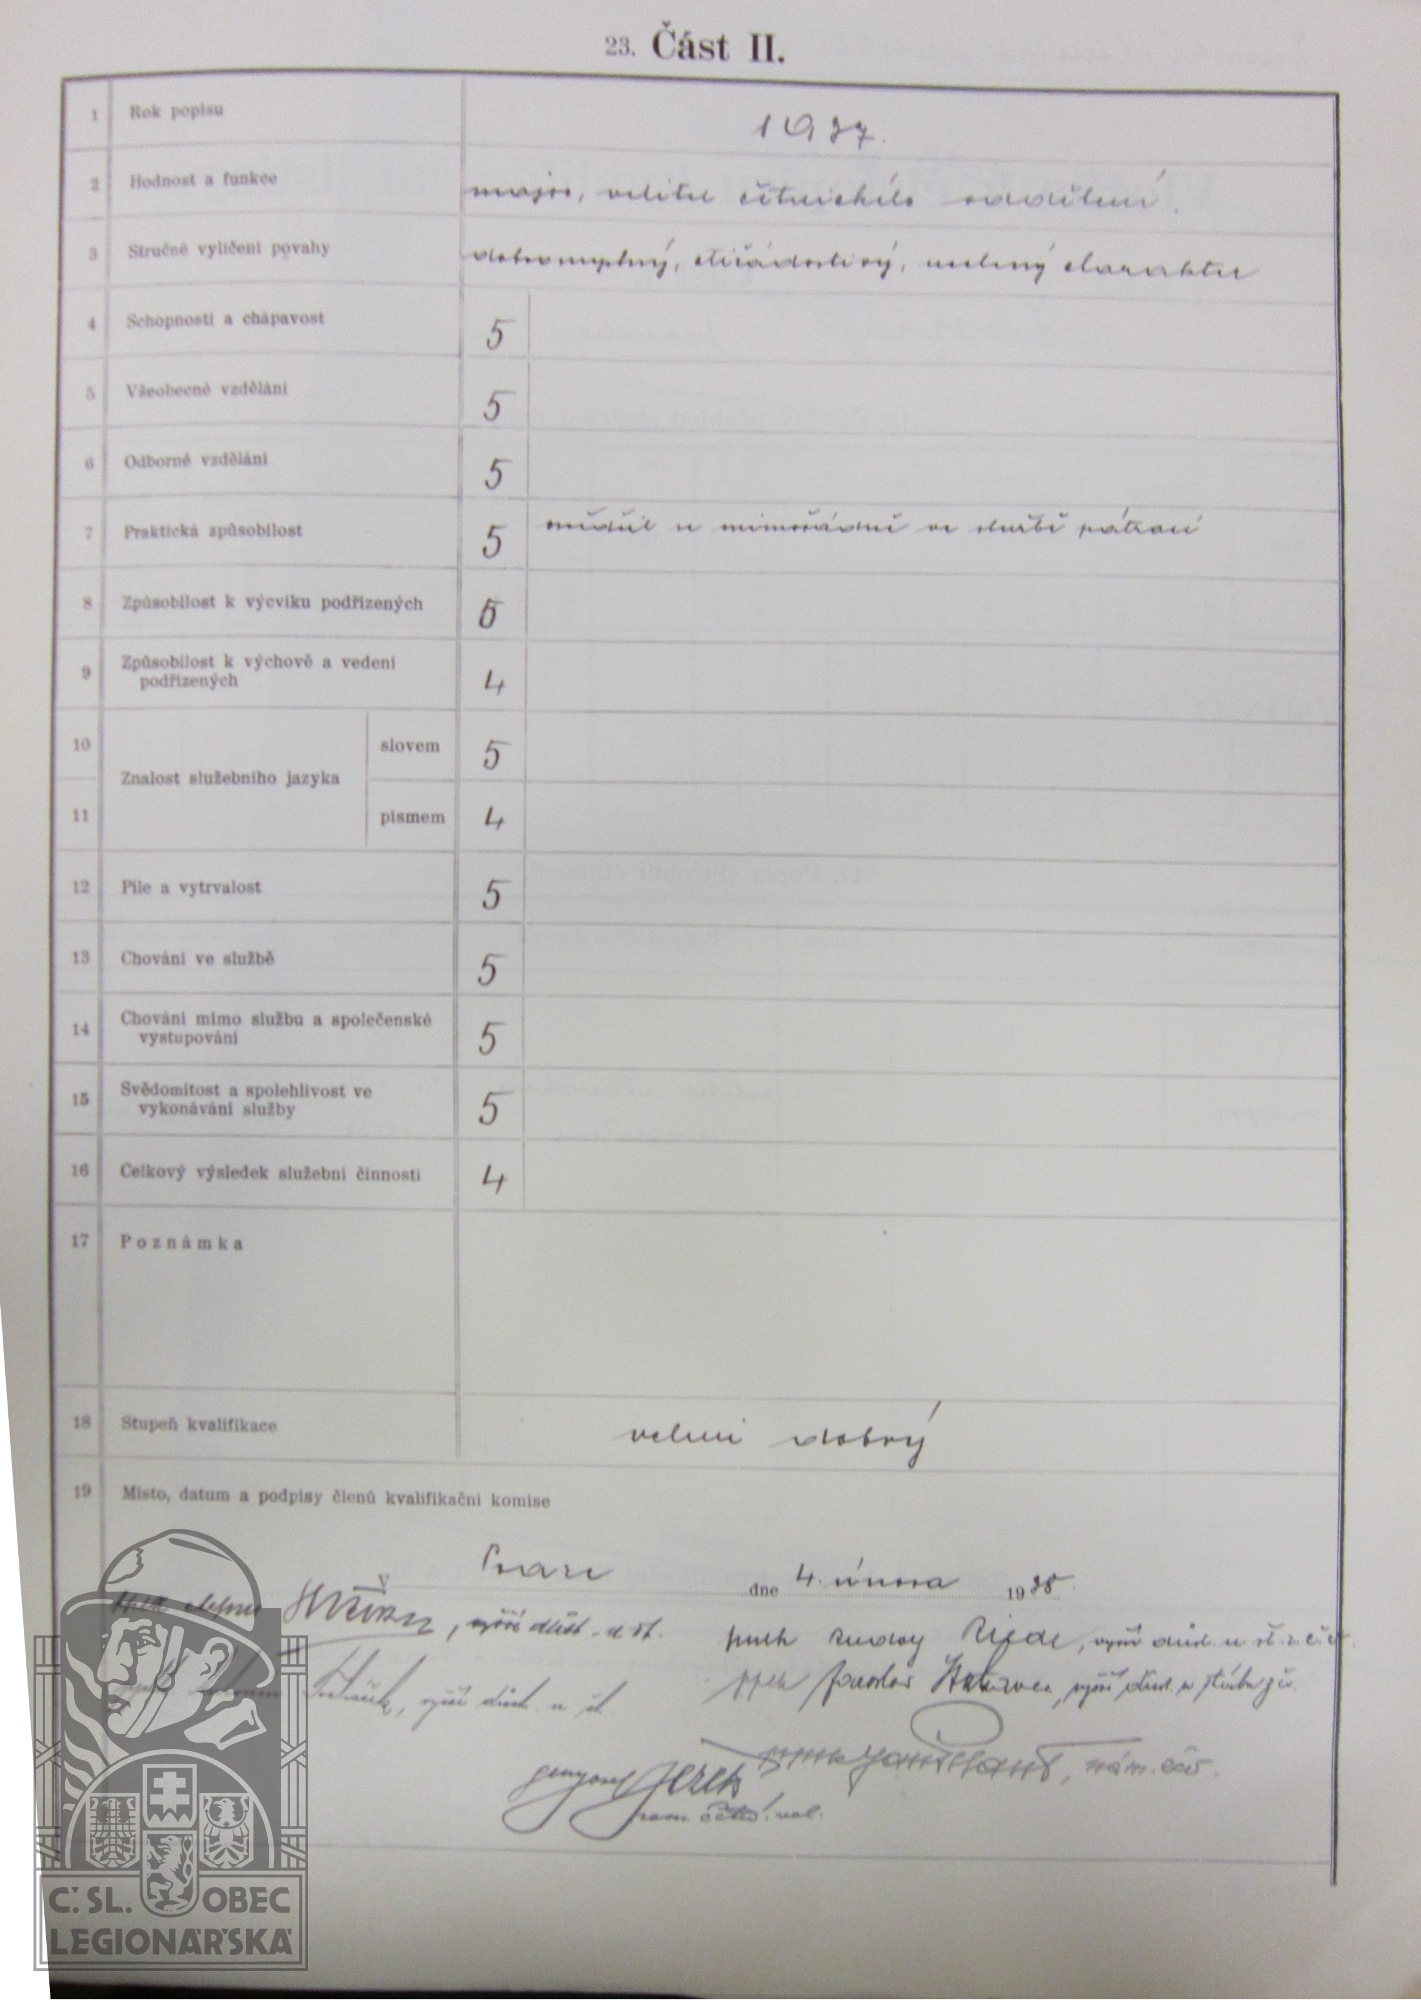 23. Část II.
1 Rok popisu 1937.
2 Hodnost a funkce major, velitel četnického oddělení.
3 Stručné vylíčení povahy dobromyslný, ctižádostivý, charakter
4 Schopnosti a chápavost 5
5 Všeobecné vzdělání 5
6 Odborné vzdělání 5
7 Praktická způsobilost 5 mimořádně ve službě pátrací
8 Způsobilost k výcviku podřízených 5
9 Způsobilost k výchově a vedení
podřízených 4
10 slovem 5
Znalost služebního jazyka
11 písmem 4
12 Píle a vytrvalost 5
13 Chování ve službě 5
14 Chování mimo službu a společenské
vystupování 5
15 Svědomitost a spolehlivost ve
vykonávání služby 5
16 Celkový výsledek služební činnosti 4
17 Poznámka
18 Stupeň kvalifikace velmi dobrý
19 Místo, datum a podpisy členů kvalifikační komise
V Praze dne 4. února 1938.
Ježek
zem. četn. vel.
Č.SL. OBEC
LEGIONÁŘSKÁ